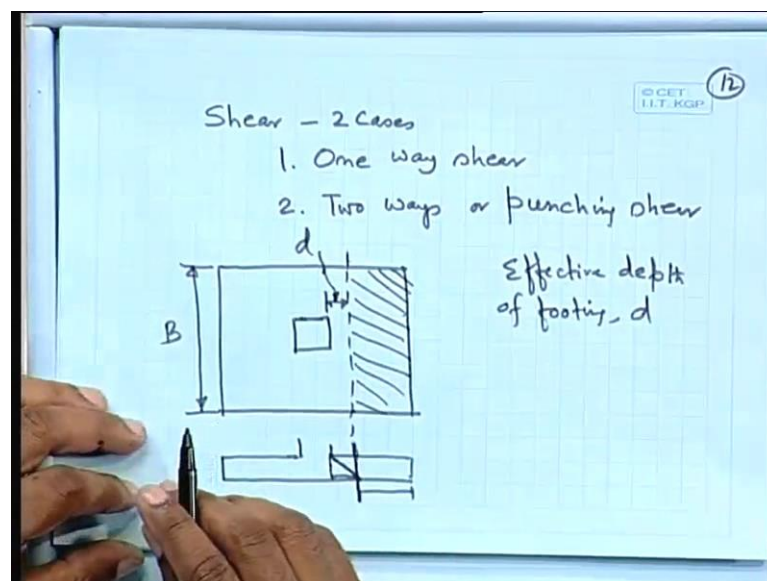 © CET
I.I.T. KGP
12
Shear – 2 Cases
1. One way shear
2. Two ways or punching shear
d
Effective depth
of footing, d
B